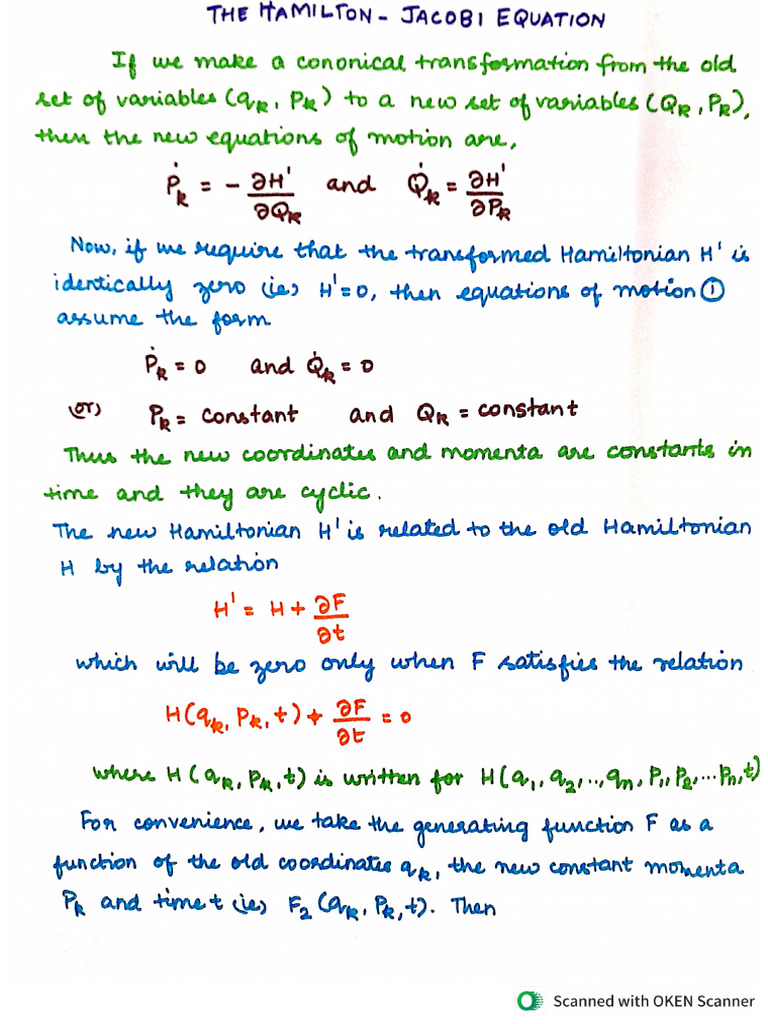 THE HAMILTON - JACOBI EQUATION
If we make a cononical transformation from the old
set of variables (qₖ, Pₖ) to a new set of variables (Qₖ, Pₖ),
then the new equations of motion are,
Ṗₖ = - ∂H'/∂Qₖ and Q̇ₖ = ∂H'/∂Pₖ
Now, if we require that the transformed Hamiltonian H' is
identically zero (ie) H'=0, then equations of motion ①
assume the form
Ṗₖ = 0 and Q̇ₖ = 0
(or) Pₖ = constant and Qₖ = constant
Thus the new coordinates and momenta are constants in
time and they are cyclic.
The new Hamiltonian H' is related to the old Hamiltonian
H by the relation
H' = H + ∂F/∂t
which will be zero only when F satisfies the relation
H(qₖ, Pₖ, t) + ∂F/∂t = 0
where H(qₖ, Pₖ, t) is written for H(q₁, q₂, .., qₙ, P₁, P₂, ... Pₙ, t)
For convenience, we take the generating function F as a
function of the old coordinates qₖ, the new constant momenta
Pₖ and time t (ie) F₂ (qₖ, Pₖ, t). Then
Scanned with OKEN Scanner